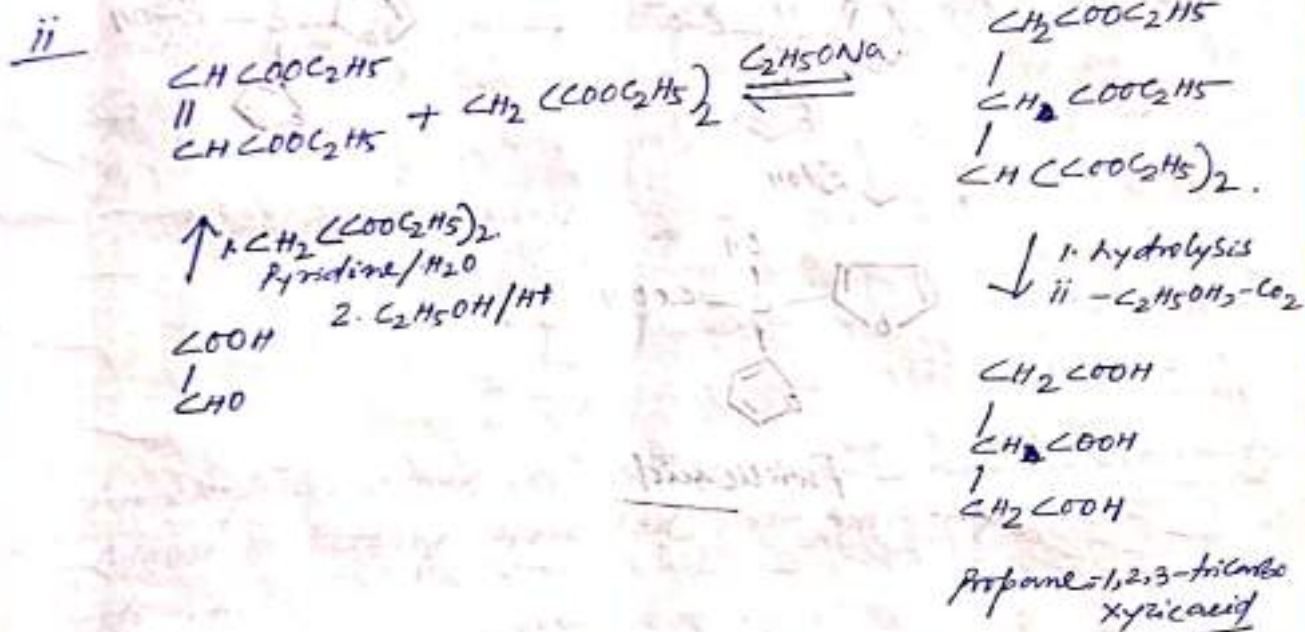 ii
CHCOOC2H5
||
CHCOOC2H5
+ CH2 (COOC2H5)2
C2H5ONa.
CH2COOC2H5
|
CH COOC2H5
|
CH (COOC2H5)2.
↑ 1. CH2(COOC2H5)2.
Pyridine/H2O
2. C2H5OH/H+
COOH
|
CHO
↓ 1. hydrolysis
ii. -C2H5OH, -CO2
CH2 COOH
|
CH COOH
|
CH2 COOH
Propane-1,2,3-tricarbo
xylic acid